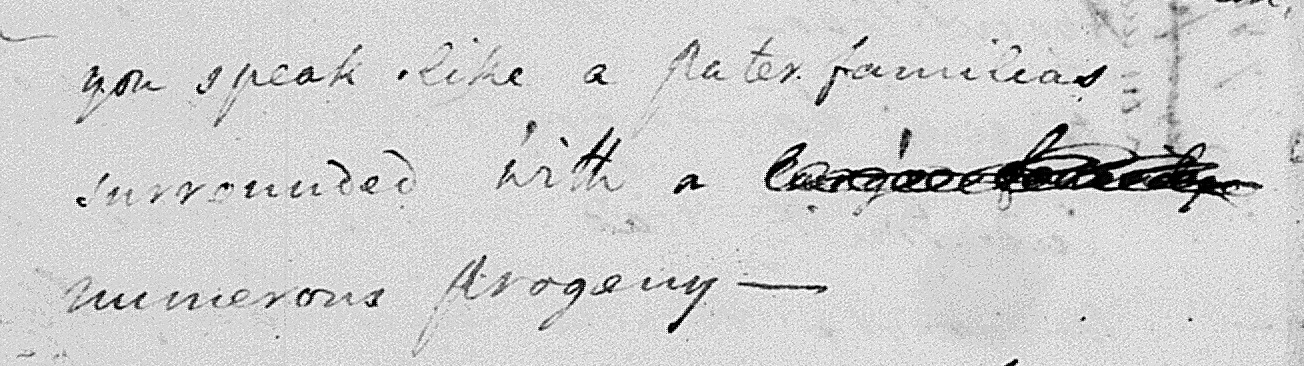 you speak like a Pater familias
surrounded with a large family
numerous Progeny —